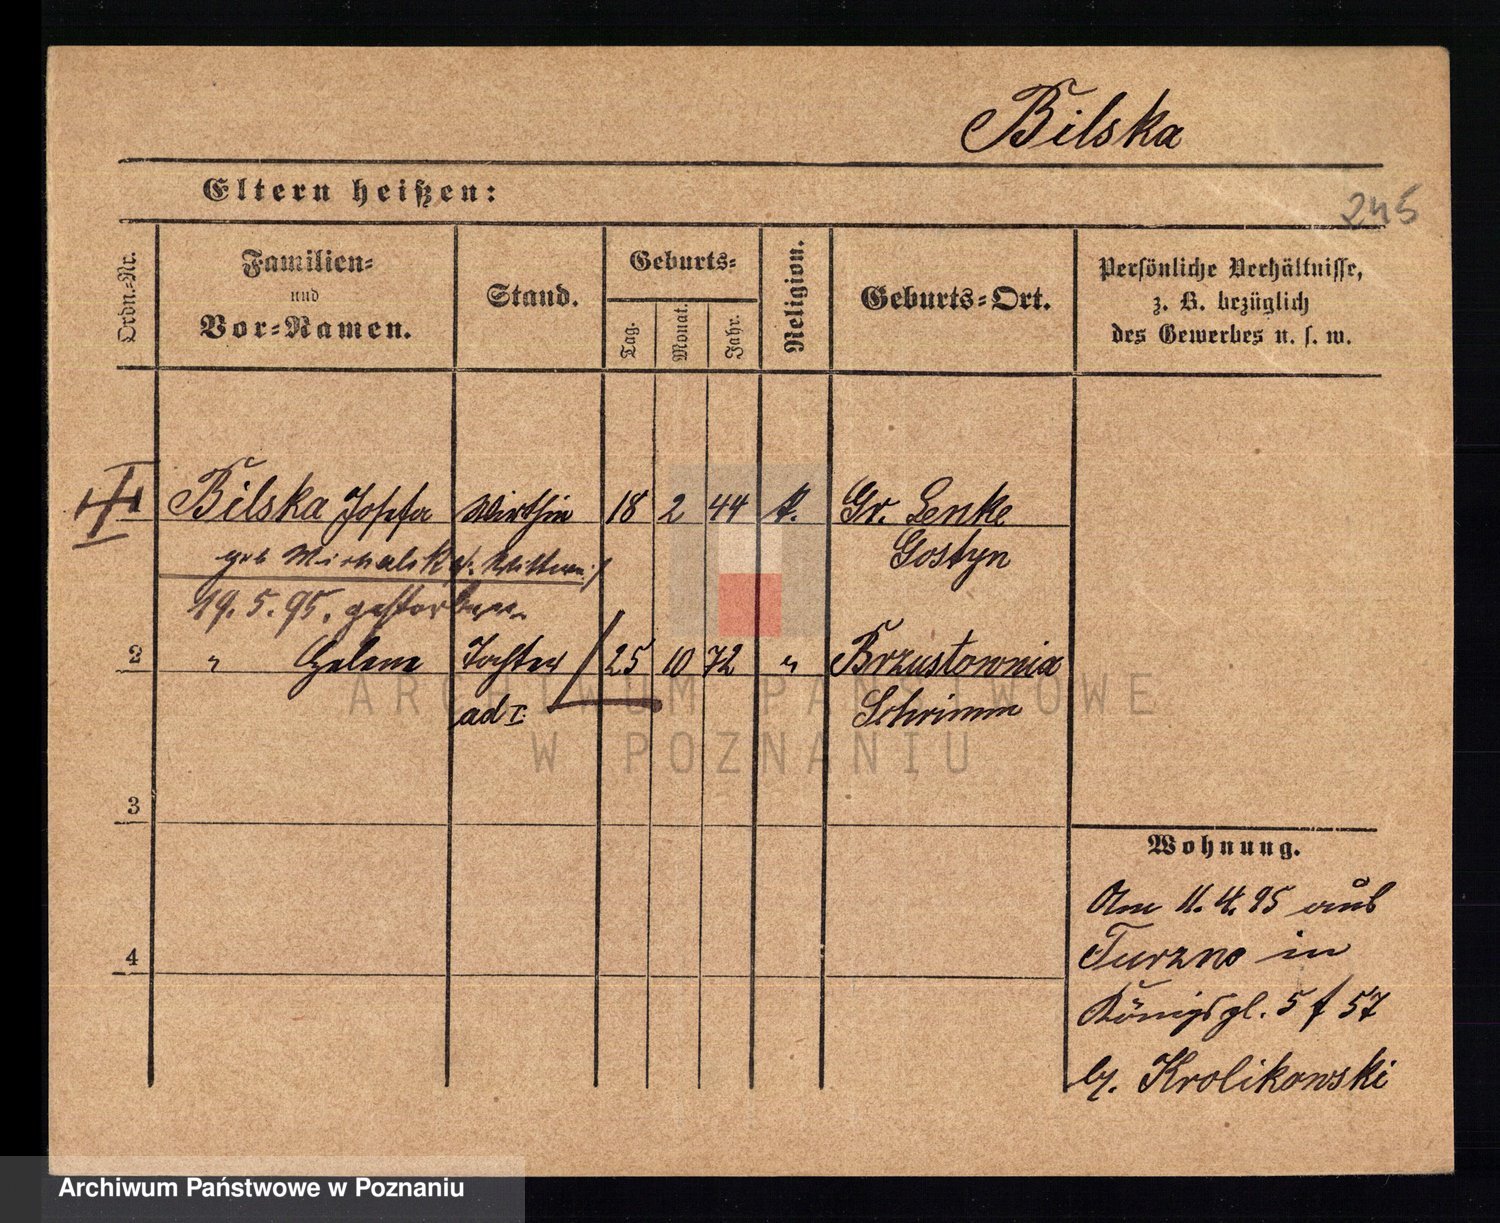 Bilska
Eltern heißen:
245
Ordn.-Nr.
Familien-
und
Vor-Namen.
Stand.
Geburts-
Tag.
Monat.
Jahr.
Religion.
Geburts-Ort.
Persönliche Verhältnisse,
z. B. bezüglich
des Gewerbes u. s. w.
Bilska Josefa Wirthin 18 2 44 k. Gr. Lenke
geb Michalska. Wittwe. Gostyn
19. 5. 95. gestorben.
2 " Helene Tochter 25 10 72 " Brzustownia
ad I. Schrimm
3
4
Wohnung.
Am 11. 4. 95 aus
Turzno in
Königspl. 5 f 57
by. Krolikowski
ARCHIWUM PAŃSTWOWE
W POZNANIU
Archiwum Państwowe w Poznaniu